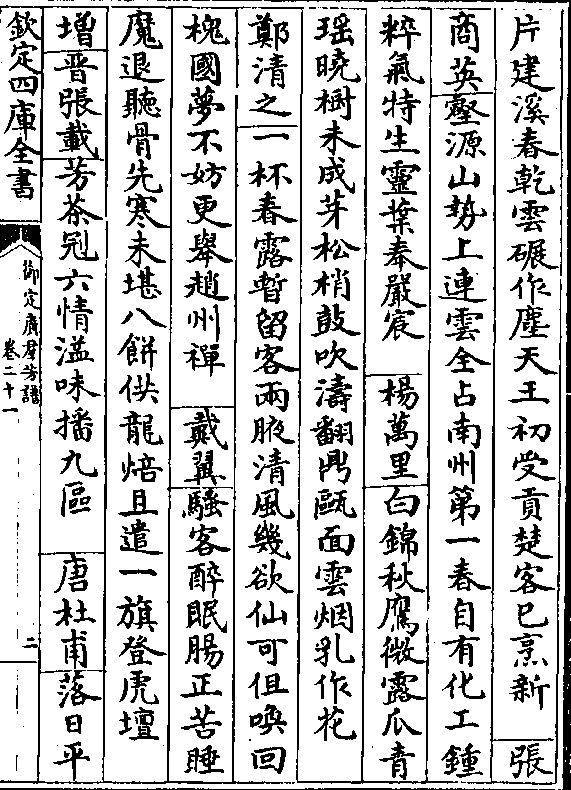 片建溪春乾雲碾作塵天王初受貢楚客已烹新　張
商英壑源山勢上連雲全占南州第一春自有化工鍾
粹氣特生靈葉奉嚴宸　楊萬里白錦秋鷹微露爪青
瑶曉樹未成芽松梢鼓吹濤翻鼎甌面雲烟乳作花
鄭清之一杯春露暫留客兩腋清風幾欲仙可但喚回
槐國夢不妨更舉趙州禪　戴翼騷客醉眠腸正苦睡
魔退聽骨先寒未堪八餅供龍焙且遣一旗登虎壇
増晋張載芳荼冠六情溢味播九區　唐杜甫落日平
欽定四庫全書
御定廣羣芳譜
卷二十一
二